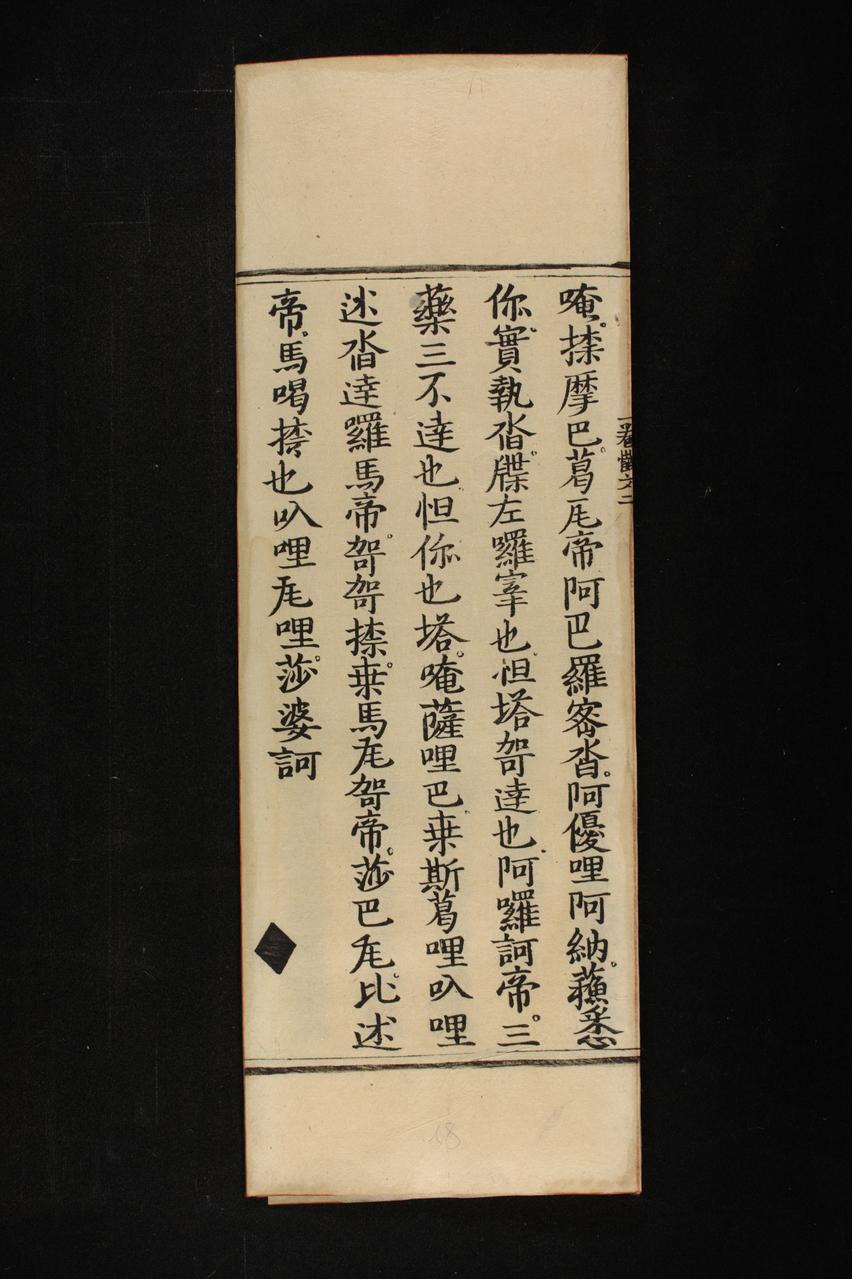 唵捺摩巴葛瓦帝阿巴羅密沓阿優哩阿納蘓悉
你實執沓牒左囉宰也怛塔哿達也阿囉訶帝三
藥三不達也怛你也塔唵薩哩巴桒斯葛哩叺哩
述沓達羅馬帝哿哿捺桒馬厇哿帝莎巴厇比述
帝馬喝捺也叺哩厇哩莎婆訶